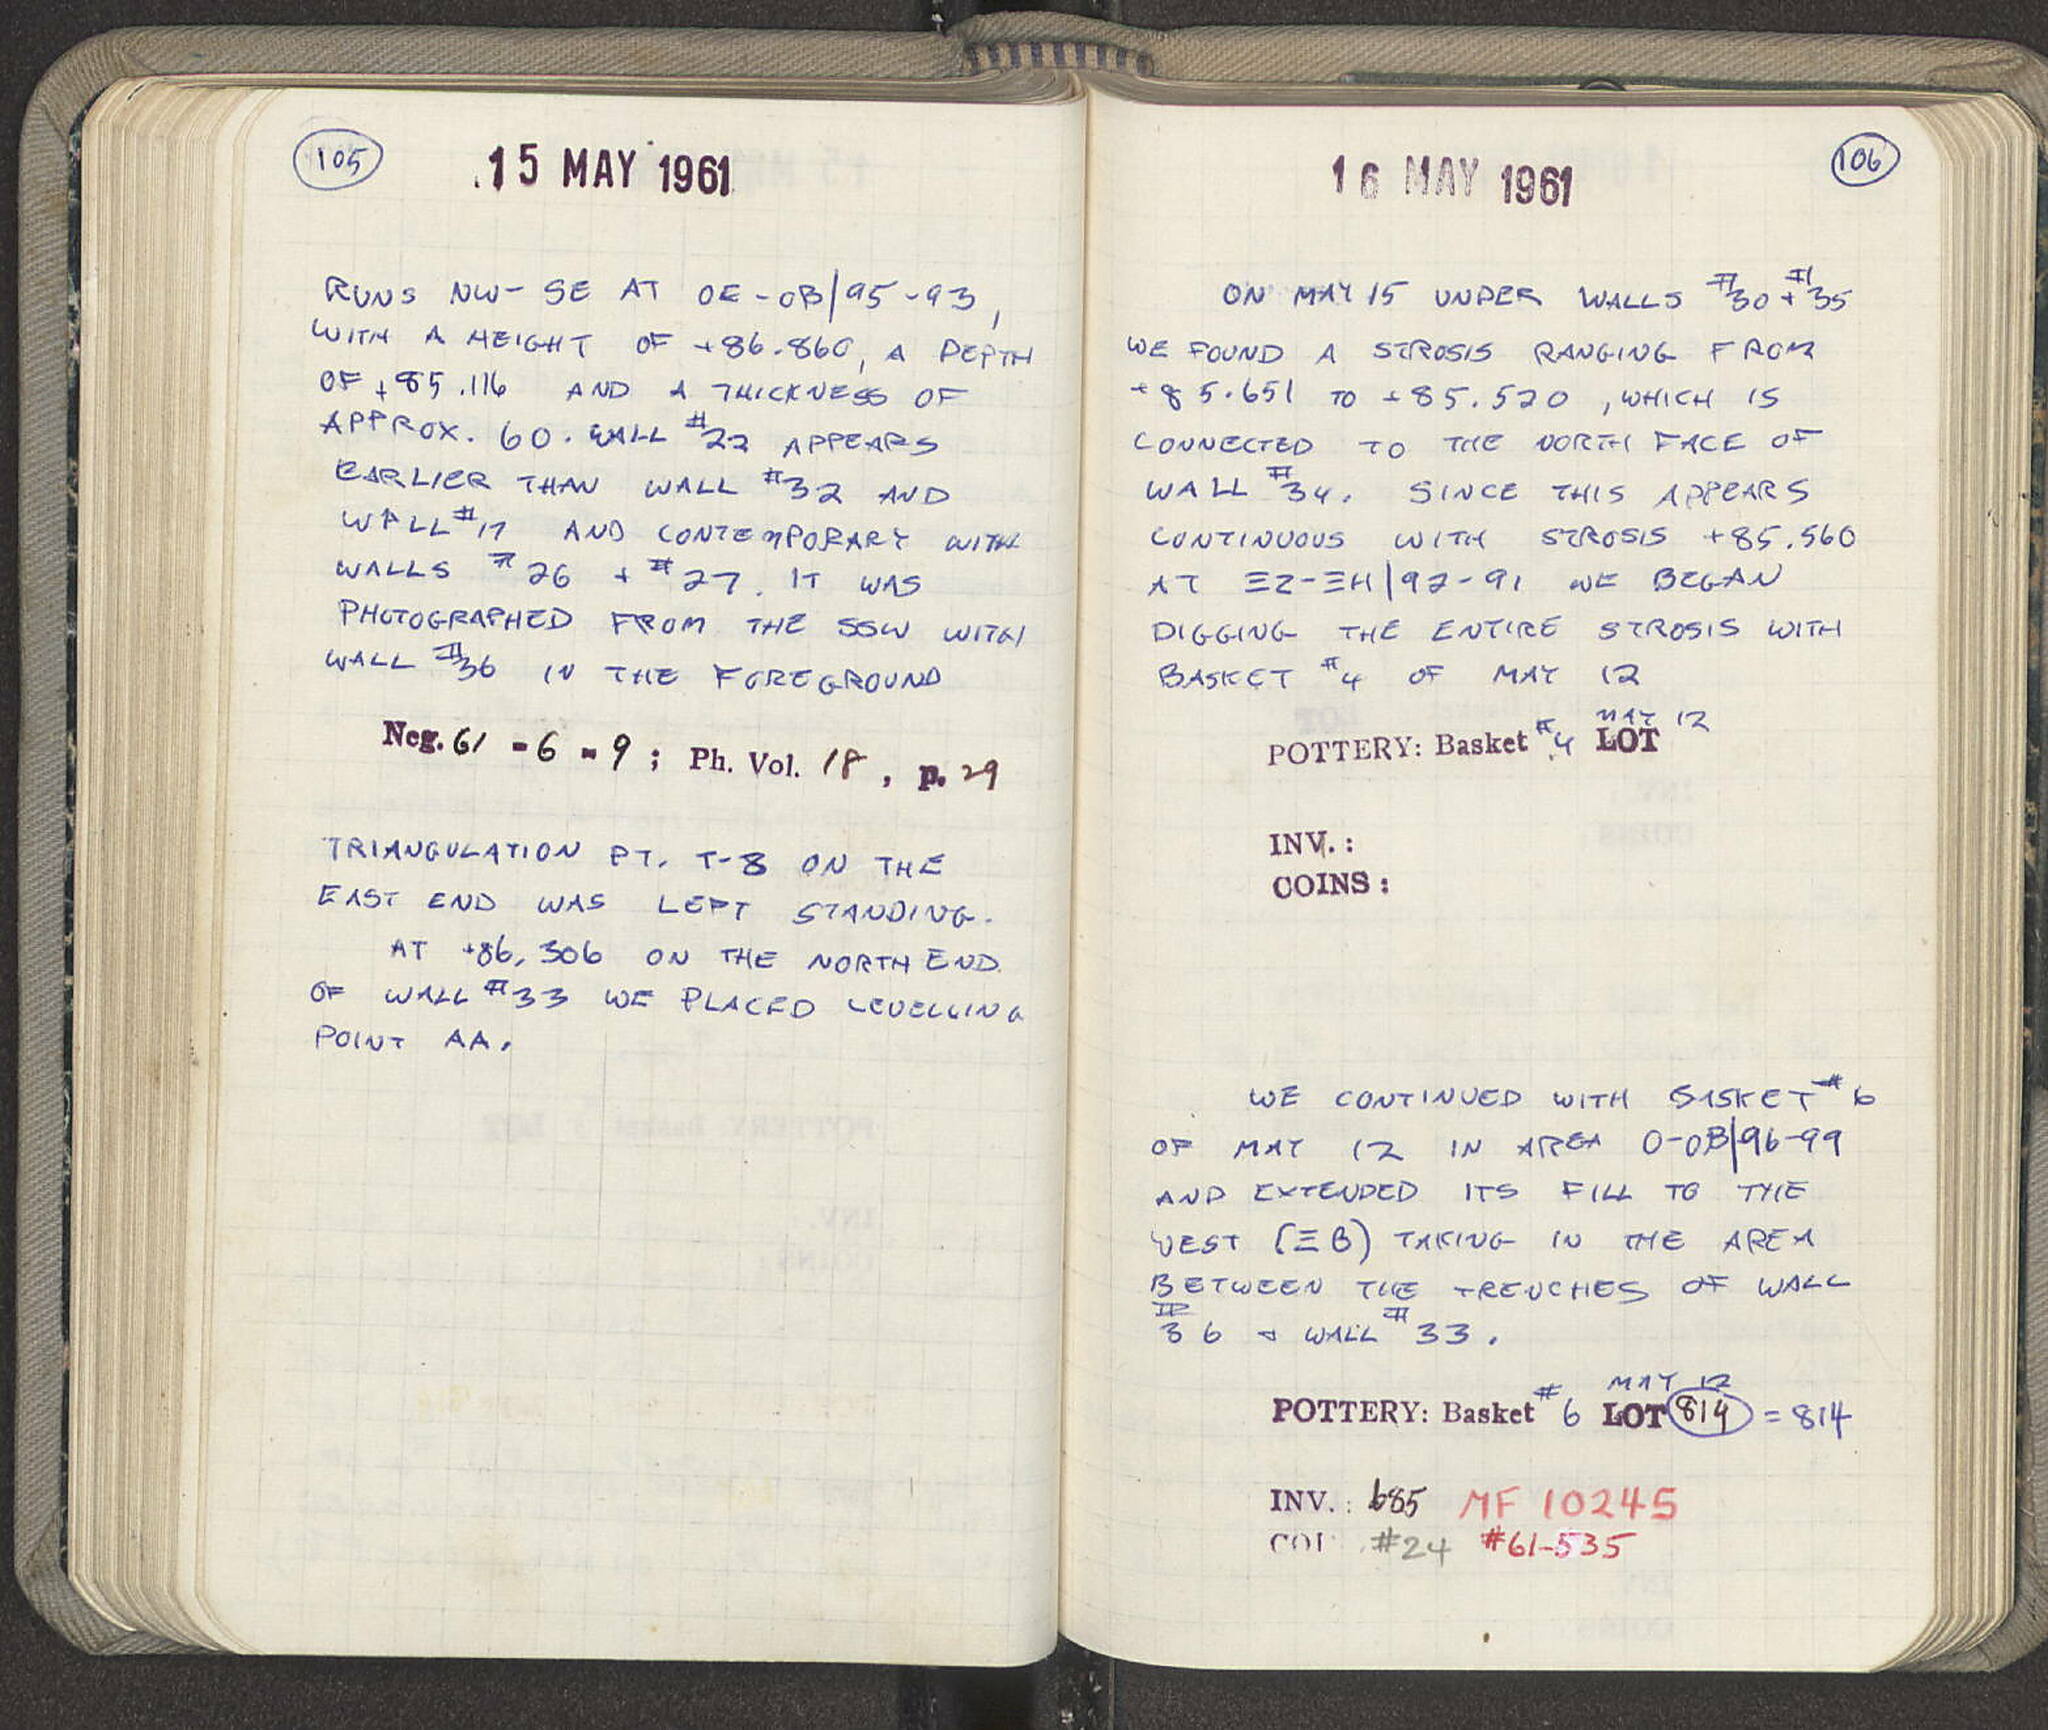 105
15 MAY 1961
RUNS NW-SE AT OE-OB|95-93,
WITH A HEIGHT OF +86.860, A DEPTH
OF +85.116 AND A THICKNESS OF
APPROX. 60. WALL #22 APPEARS
EARLIER THAN WALL #32 AND
WALL #17 AND CONTEMPORARY WITH
WALLS #26 + #27. IT WAS
PHOTOGRAPHED FROM THE SSW WITH
WALL #36 IN THE FOREGROUND
Neg. 61 - 6 - 9 ; Ph. Vol. 18, p. 29
TRIANGULATION PT. T-8 ON THE
EAST END WAS LEFT STANDING.
AT +86.306 ON THE NORTH END
OF WALL #33 WE PLACED LEVELLING
POINT AA.
16 MAY 1961
106
ON MAY 15 UNDER WALLS #30 + #35
WE FOUND A STROSIS RANGING FROM
+85.651 TO +85.520, WHICH IS
CONNECTED TO THE NORTH FACE OF
WALL #34. SINCE THIS APPEARS
CONTINUOUS WITH STROSIS +85.560
AT ΞZ-ΞH|92-91 WE BEGAN
DIGGING THE ENTIRE STROSIS WITH
BASKET #4 OF MAY 12
MAY 12
POTTERY: Basket #4 LOT
INV.:
COINS:
WE CONTINUED WITH BASKET #6
OF MAY 12 IN AREA O-OB|96-99
AND EXTENDED ITS FILL TO THE
WEST (ΞB) TAKING IN THE AREA
BETWEEN THE TRENCHES OF WALL
#36 + WALL #33.
MAY 12
POTTERY: Basket #6 LOT 814 = 814
INV.: 685 MF 10245
COI #24 #61-535